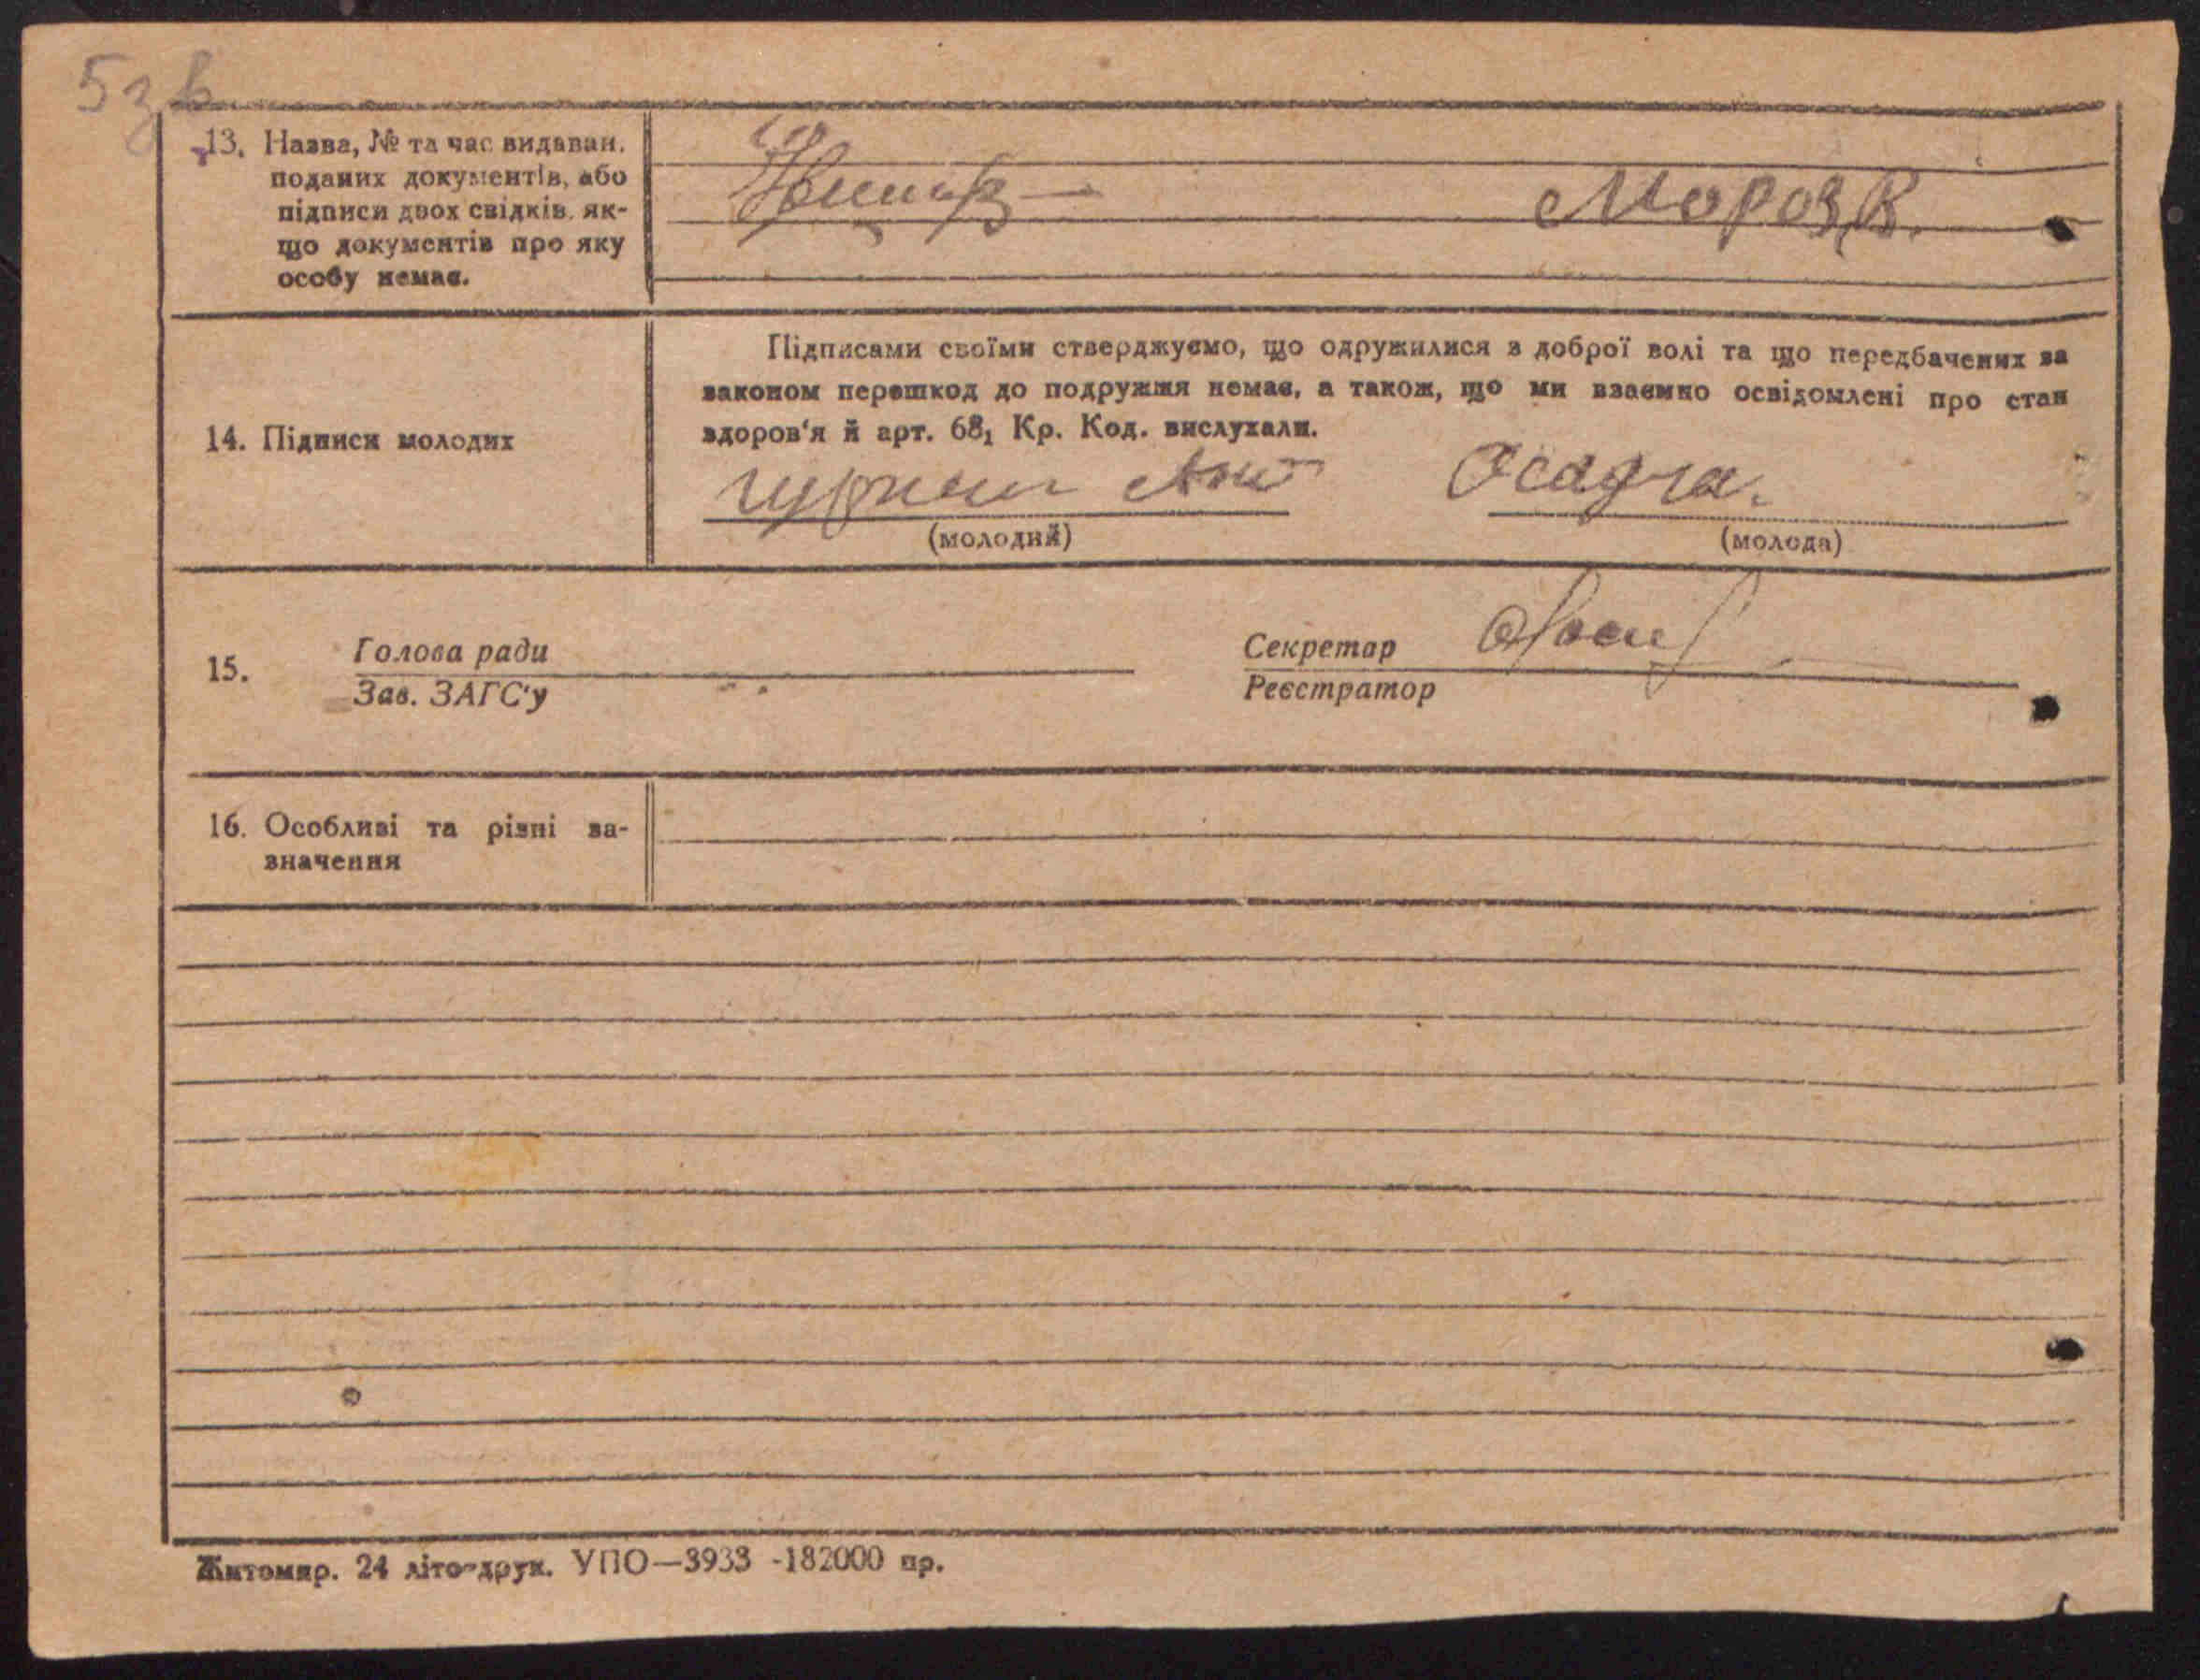 5зв
13. Назва, № та час видаван.
поданих документів, або
підписи двох свідків, як-
що документів про яку
особу немає.
Мороз В.
Підписами своїми стверджуємо, що одружилися з доброї волі та що передбачених за
законом перешкод до подружжя немає, а також, що ми взаємно освідомлені про стан
здоров'я й арт. 68₁ Кр. Код. вислухали.
14. Підписи молодих
Осадча.
(молодий) (молода)
15. Голова ради
Зав. ЗАГС'у
Секретар
Реєстратор
16. Особливі та різні за-
значення
Житомир. 24 літо-друк. УПО—3933 -182000 пр.